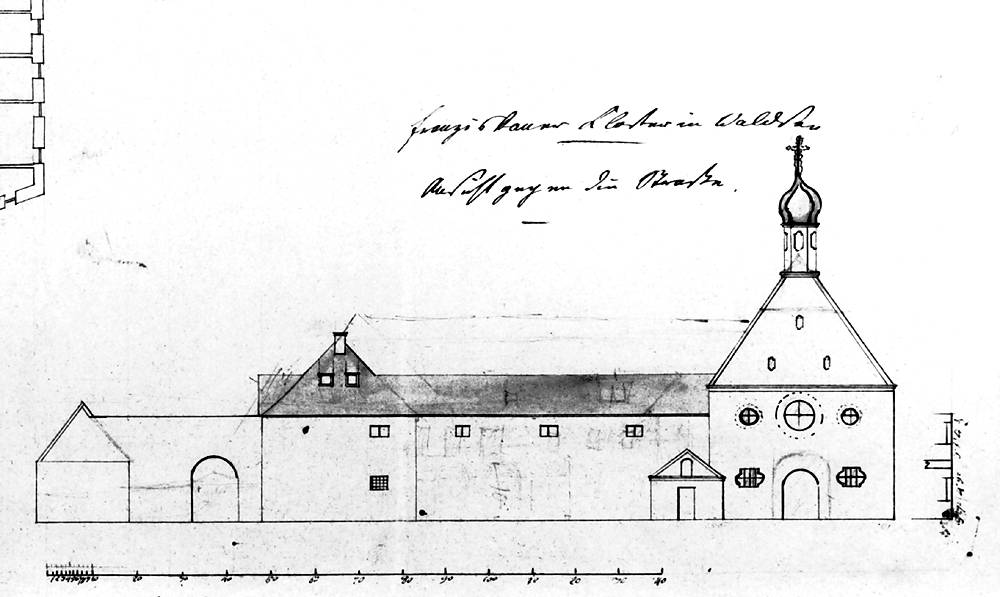 Franziskaner Kloster in Waldsee
Ansicht gegen die Straße.
10 20 30 40 50 60 70 80 90 100 10 20 30 40